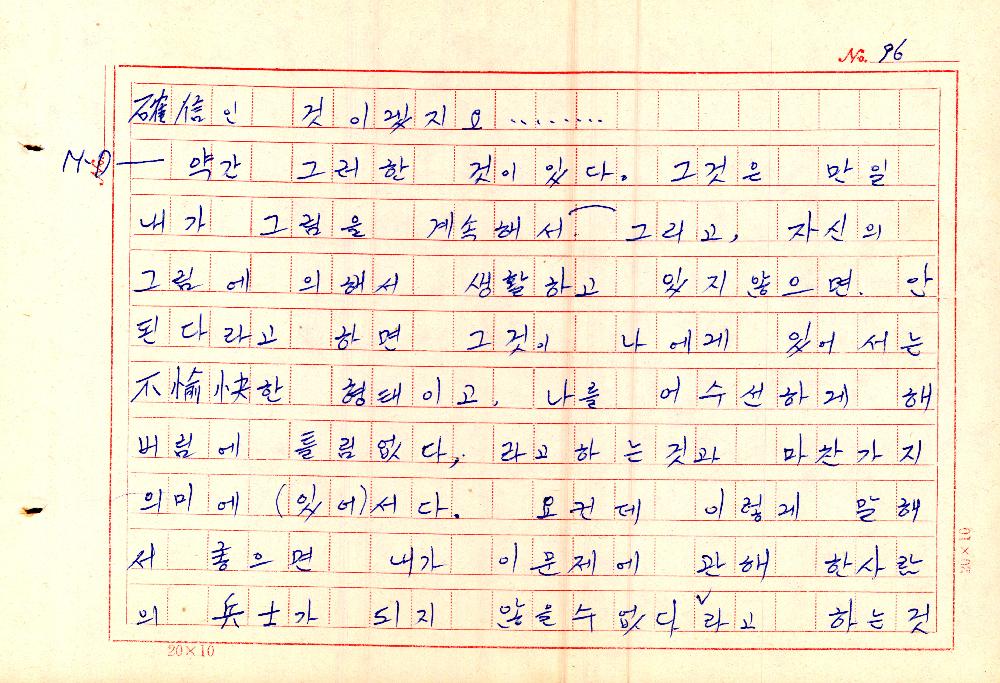 No. 96
確信인 것이겠지요 ‥‥‥‥
M-D ― 약간 그러한 것이 있다. 그것은 만일
내가 그림을 계속해서 그리고, 자신의
그림에 의해서 생활하고 있지않으면. 안
된다라고 하면 그것이 나에게 있어서는
不愉快한 형태이고, 나를 어수선하게 해
버림에 틀림없다, 라고하는것과 마찬가지
의미에 (있어)서다. 요컨데 이렇게 말해
서 좋으면 내가 이문제에 관해 한사람
의 兵士가 되지 않을수없다 라고 하는것
20×10